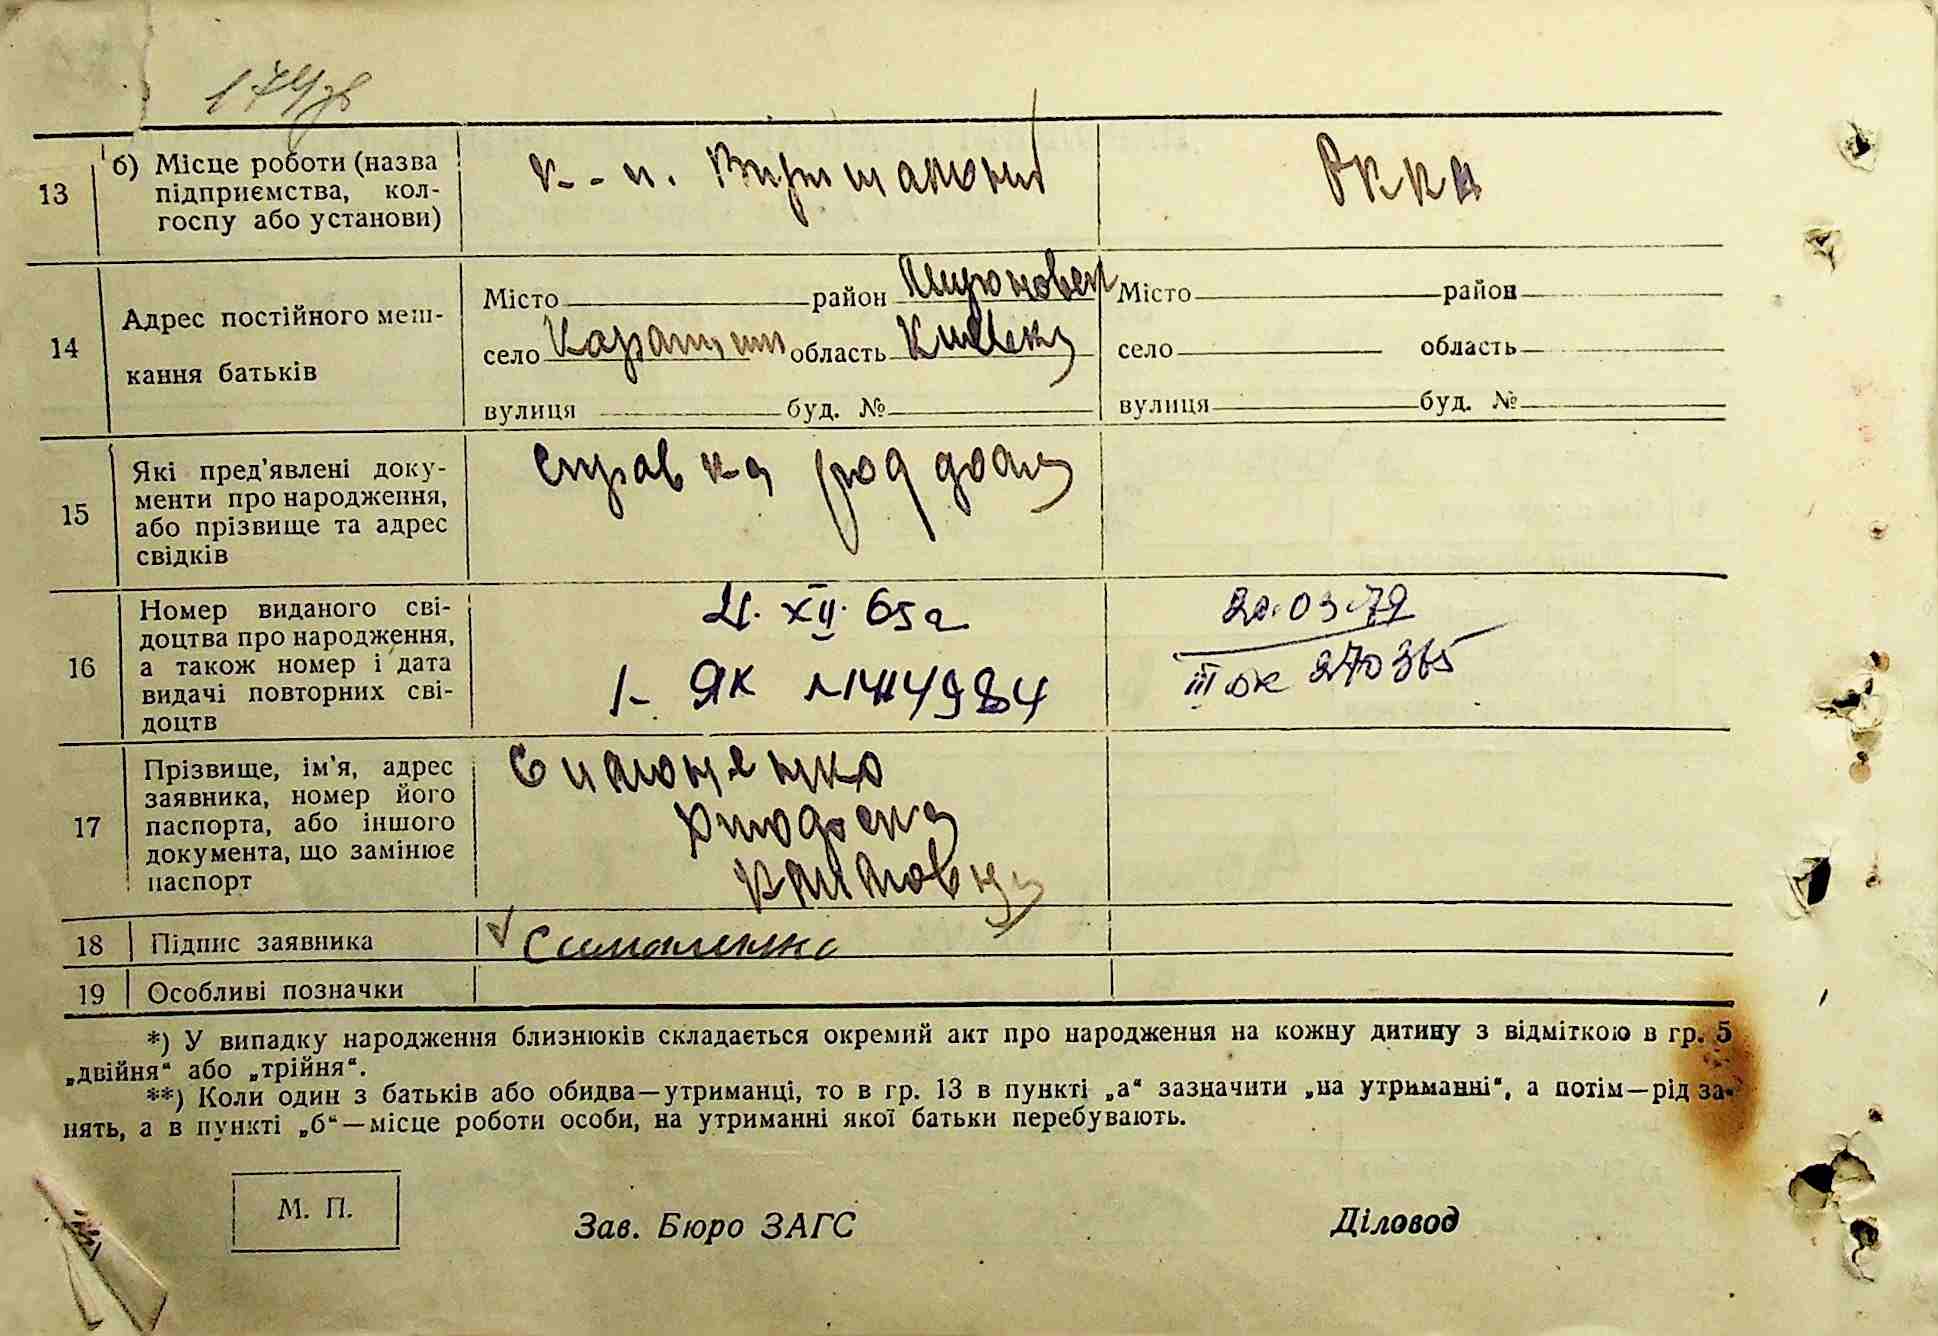 174зв
13 б) Місце роботи (назва підприємства, кол-госпу або установи)
РККА
14 Адрес постійного меш-
кання батьків
Місто район Місто район
село область Київська село область
вулиця буд. № вулиця буд. №
15 Які пред'явлені доку-
менти про народження,
або прізвище та адрес
свідків
справка роддома
16 Номер виданого сві-
доцтва про народження,
а також номер і дата
видачі повторних сві-
доцтв
21. XII. 65г
I- ЯК №
20.03.79
270365
17 Прізвище, ім'я, адрес
заявника, номер його
паспорта, або іншого
документа, що замінює
паспорт
Симоненко
18 Підпис заявника Симоненко
19 Особливі позначки
*) У випадку народження близнюків складається окремий акт про народження на кожну дитину з відміткою в гр. 5
„двійня“ або „трійня“.
**) Коли один з батьків або обидва—утриманці, то в гр. 13 в пункті „а“ зазначити „на утриманні“, а потім—рід за-
нять, а в пункті „б“—місце роботи особи, на утриманні якої батьки перебувають.
М. П.
Зав. Бюро ЗАГС Діловод